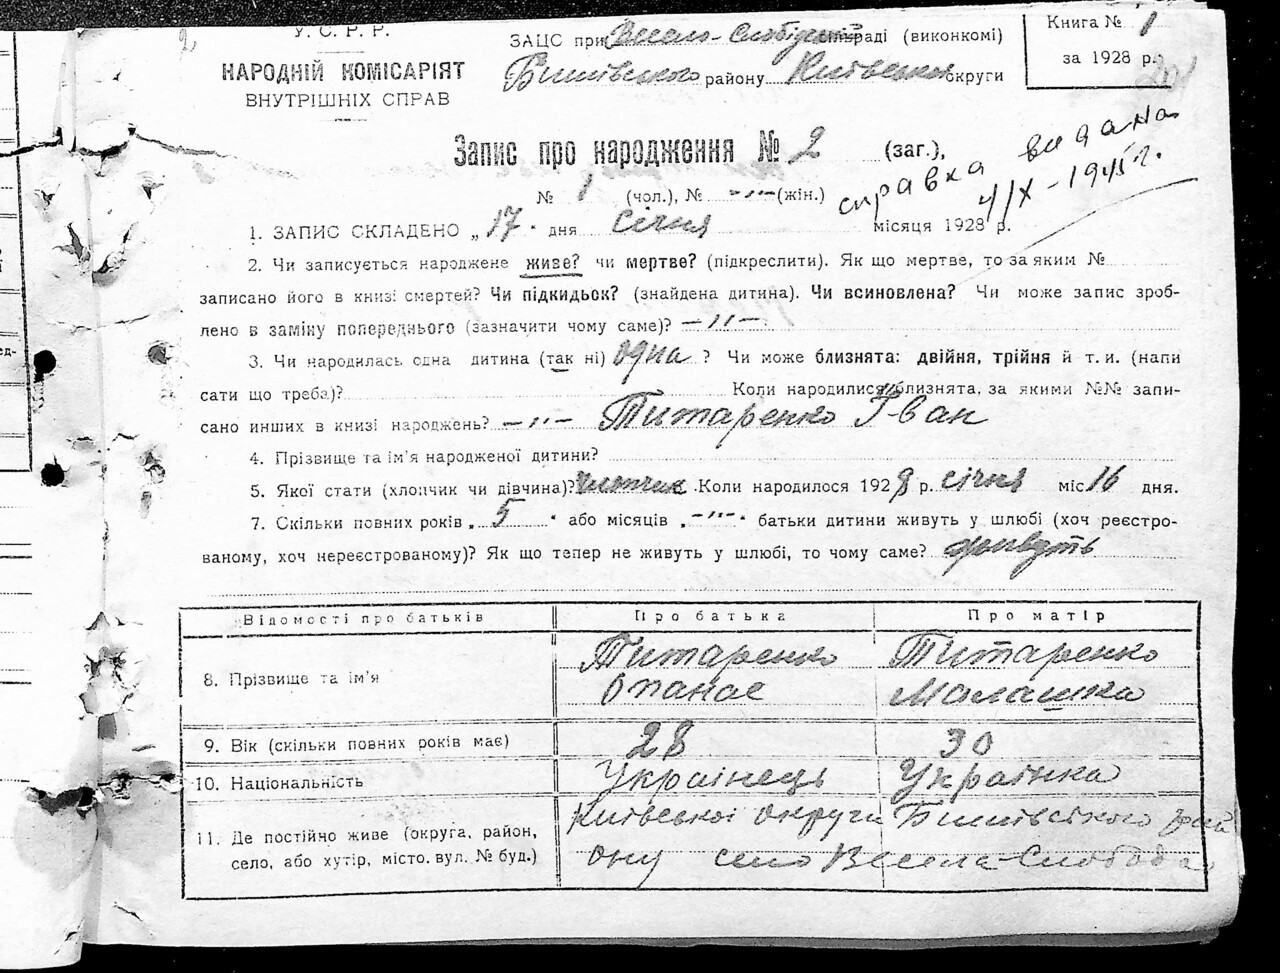 У. С. Р. Р.
НАРОДНІЙ КОМІСАРІЯТ
ВНУТРІШНІХ СПРАВ
ЗАЦС при Весело-Слобідській сільраді (виконкомі)
Бишівського району Київської округи
Книга № 1
за 1928 р.
Запис про народження № 2 (заг.),
№ 1 (чол.), № -"- (жін.)
справка видана
4/IX-1945 г.
1. ЗАПИС СКЛАДЕНО „17" дня січня місяця 1928 р.
2. Чи записується народжене живе? чи мертве? (підкреслити). Як що мертве, то за яким №
записано його в книзі смертей? Чи підкидьок? (знайдена дитина). Чи всиновлена? Чи може запис зроб-
лено в заміну попереднього (зазначити чому саме)? -"-
3. Чи народилась одна дитина (так ні) одна? Чи може близнята: двійня, трійня й т. и. (напи
сати що треба)? Коли народилися близнята, за якими №№ запи-
сано инших в книзі народжень? -"- Титаренко Іван
4. Прізвище та ім'я народженої дитини?
5. Якої статі (хлопчик чи дівчина)? хлопчик. Коли народилося 1928 р. січня міс 16 дня.
7. Скільки повних років „5" або місяців „-"-" батьки дитини живуть у шлюбі (хоч реєстро-
ваному, хоч нереєстрованому)? Як що тепер не живуть у шлюбі, то чому саме? живуть
Відомості про батьків Про батька Про матір
8. Прізвище та ім'я Титаренко Опанас Титаренко Малашка
9. Вік (скільки повних років має) 28 30
10. Національність Українець Українка
11. Де постійно живе (округа, район, Київської округи Бишівського рай
село, або хутір, місто. вул. № буд.) ону село Весела-Слобода